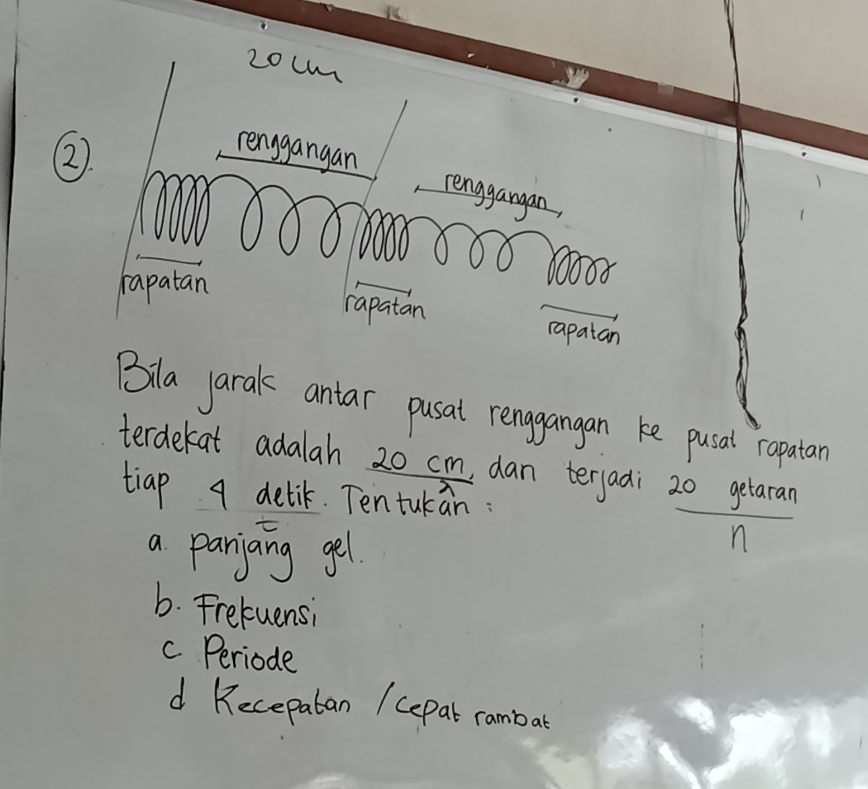 20 cm
②.
renggangan
renggangan
rapatan
rapatan
rapatan
Bila jarak antar pusat renggangan ke pusat rapatan
terdekat adalah 20 cm, dan terjadi 20 getaran
λ
n
tiap 4 detik. Tentukan :
t
a. panjang gel.
b. Frekuensi
c Periode
d Kecepatan / cepat rambat